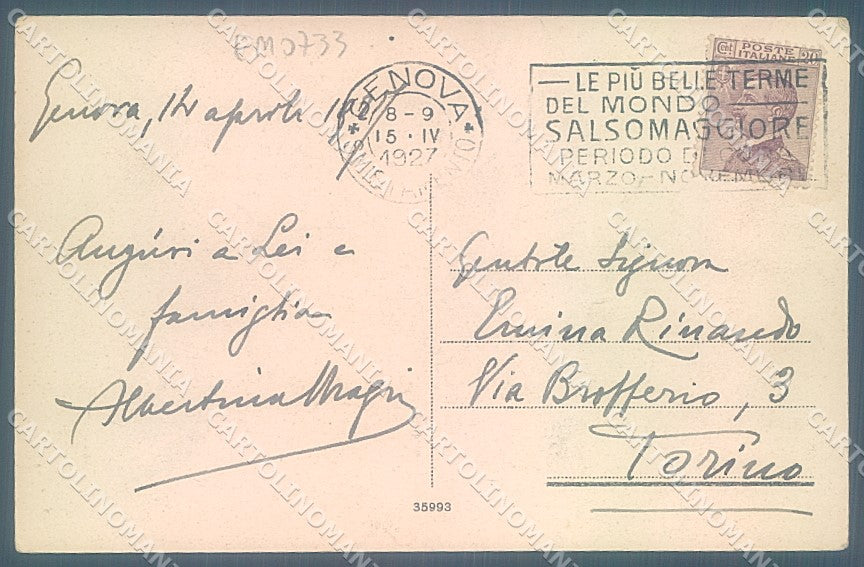 EM0733
Genova, 14 aprile
GENOVA
8-9
15·IV
1927
LE PIÙ BELLE TERME
DEL MONDO
SALSOMAGGIORE
PERIODO
MARZO-NOVEMBRE
POSTE ITALIANE
Cent 20
Auguri a Lei e
famiglia
Albertina Magri
Gentile Signora
Emina Rinaudo
Via Brofferio, 3
Torino
35993
CARTOLINOMANIA